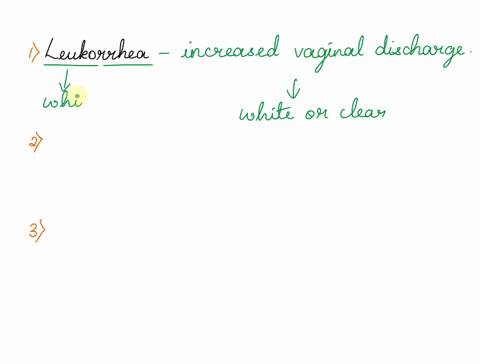 1) Leukorrhea - increased vaginal discharge.
whi
white or clear
2)
3)